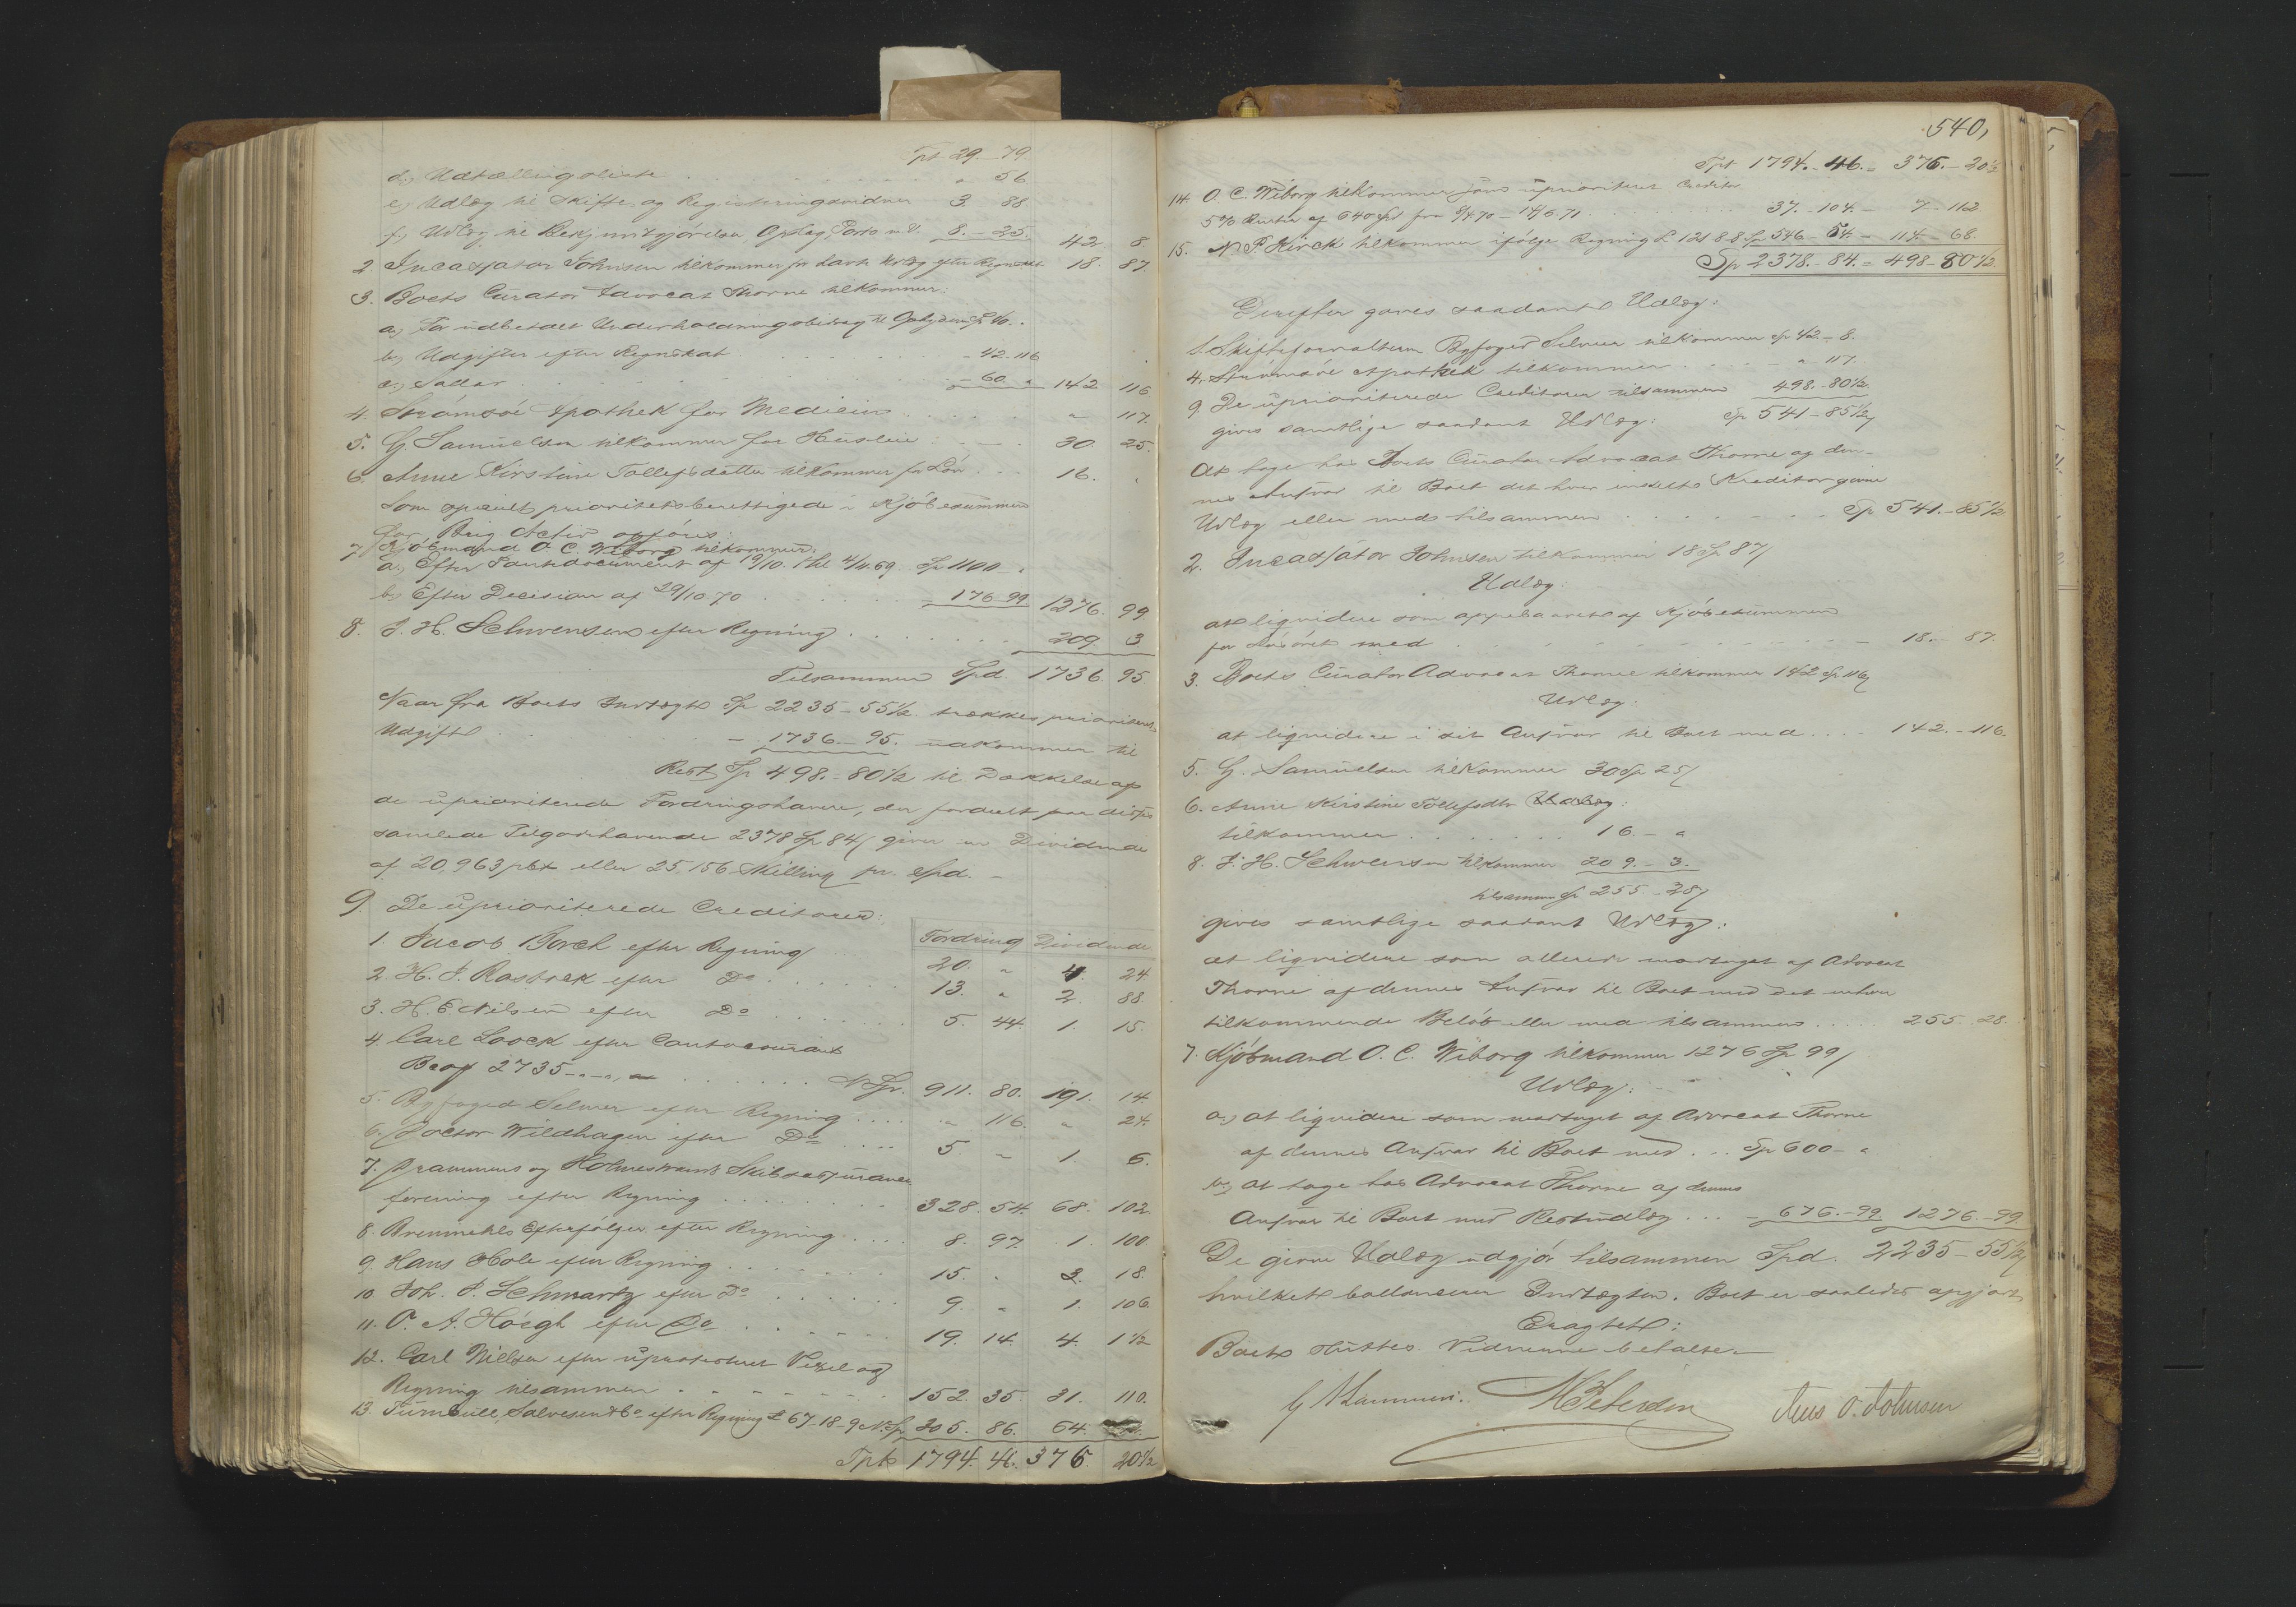 Tpt 29 - 79
d., Udtællingsliste . . . . " 56
e., Udlæg til Skifte og Registreringsvidner 3. 88
f., Udlæg til Bekjendtgjørelse, Opslag, Porto m. v. 8. - 25. 42. 8.
2. Incassator Johnsen tilkommer for havt Krav efter Regnskab 18. 87.
3. Boets Curator Advocat Thorne tilkommer:
a., For udbetalt Underholdningsbidrag til
b., Udgifter efter Regnskab . . . - 42 - 116
c., Sallar . . . - 60 " 142. 116.
4. Strömsöe Apothek for Medicin . . . " 117.
5. G. Samuelsen tilkommer for Husleie . . . 30. 25.
6. Anne Kirstine Tollefsdatter tilkommer for Lön . . . 16. "
Som specielt prioritetsberettigede i Kjöbesummen
for Brig Activ opföres:
7. Kjöbmand O. C. Wiborg tilkommer:
a., Efter Pantedocument af 19/10. thl. 4/11. 69. Sp 1100 - "
b., Efter Decision af 29/10 70 . . . - 176 - 99 1276. 99
8. J. H. Schwensen efter Regning . . . 209. 3
Tilsammen Spd. 1736. 95.
Naar fra Boets Indtægt Sp 2235 - 55 1/2. trækkes prioriteret
Udgift . . . - 1736. - 95. udkommer til
Rest Sp 498. - 80 1/2 til Dækkelse af
de uprioriterede Fordringshavere, der fordeelt paa disses
samlede Tilgodehavende 2378 Sp 84/ giver en Dividende
af 20,963 pCt eller 25,156 Skilling pr. Spd. -
9. De uprioriterede Creditorer:
Fordring Dividende
1. Jacob Borch efter Regning 20. " 4. 24
2. H. J. Rastock efter Do . . . 13. " 2. 88.
3. H. E. Nilsen efter Do . . . 5. 44 1. 15.
4. Carl Loock efter Contocourant
Bco 2735 - " - ", . . . N. Sp. 911. 80. 191. 14.
5. Byfoged Selmer efter Regning . . . " 116. " 24.
6. Doctor Wildhagen efter Do . . . 5. " 1. 6.
7. Drammens og Holmestrands Skibsassurance
forening efter Regning . . . 328. 54. 68. 102.
8. Efterfölger efter Regning . . . 8. 97. 1. 100
9. Hans Hole efter Regning . . . 15. " 3. 18.
10. Joh. P. Schwartz efter Do . . . 9. " 1. 106
11. O. A. Höegh efter Do . . . 19. 14. 4. 1 1/2
12. Carl Nielsen efter uprotesteret Vexel og
Regning tilsammen . . . 152. 35. 31. 110.
13. Turnbull, Salvesen & Co efter Regning £ 67 - 18 - 9 N. Sp 305. 86. 64.
Tpt 1794. 46. 376. 20 1/2
540,
Tpt 1794. - 46. - 376. - 20 1/2
14. O. C. Wiborg tilkommer som uprioriteret Creditor
5 % Renter af 640 Spd fra 5/4 70 - 14/6. 71. . . . 37. - 104. - 7 - 112
15. N. P. Kirck tilkommer ifölge Regning £ 121. 8. 8 Sp 546 - 54. - 114. - 68.
Sp 2378. - 84. - 498 - 80 1/2.
Derefter gaves saadant Udlæg:
1. Skifteforvalteren Byfoged Selmer tilkommer Sp 42 - 8.
4. Strömsöe Apothek tilkommer . . . " 117.
9. De uprioriterede Creditorer tilsammen 498. - 80 1/2.
gives samtlige saadant Udlæg: Sp 541 - 85 1/2
At tage hos Boets Curator Advocat Thorne og den-
nes Ansvar til Boet det hver enkelt Kreditor givne
Udlæg eller med tilsammen . . . Sp 541. - 85 1/2
2. Incassator Johnsen tilkommer 18 Sp 87/
Udlæg:
at liquidere som oppebaaret af Kjöbesummen
for Lösöret med . . . - 18. - 87.
3. Boets Curator Advocat Thorne tilkommer 142 Sp 116/
Udlæg:
at liquidere i sit Ansvar til Boet med . . . 142. - 116.
5. G. Samuelsen tilkommer 30 Sp 25/
6. Anne Kirstine Tollefsdtr Udlæg:
tilkommer . . . 16. - "
8. J. H. Schwensen tilkommer 209. - 3.
tilsammen Sp 255. - 28/
gives samtlige saadant Udlæg:
at liquidere som allerede modtaget af Advocat
Thorne af dennes Ansvar til Boet med det enhver
tilkommende Belöb eller med tilsammen . . . 255. 28.
7. Kjöbmand O. C. Wiborg tilkommer 1276 Sp 99/
Udlæg:
a., at liquidere som modtaget af Advocat Thorne
af dennes Ansvar til Boet med . . Sp 600 - "
b., at tage hos Advocat Thorne af dennes
Ansvar til Boet med Restudlæg . . . - 676. - 99. 1276. - 99.
De givne Udlæg udgjör tilsammen Spd. 2235 - 55 1/2
hvilket ballancerer Indtægten. Boet er saaledes opgjort
Eragtet:
Boet sluttes. Vidnerne betaltes.
H Petersen O. Johnsen